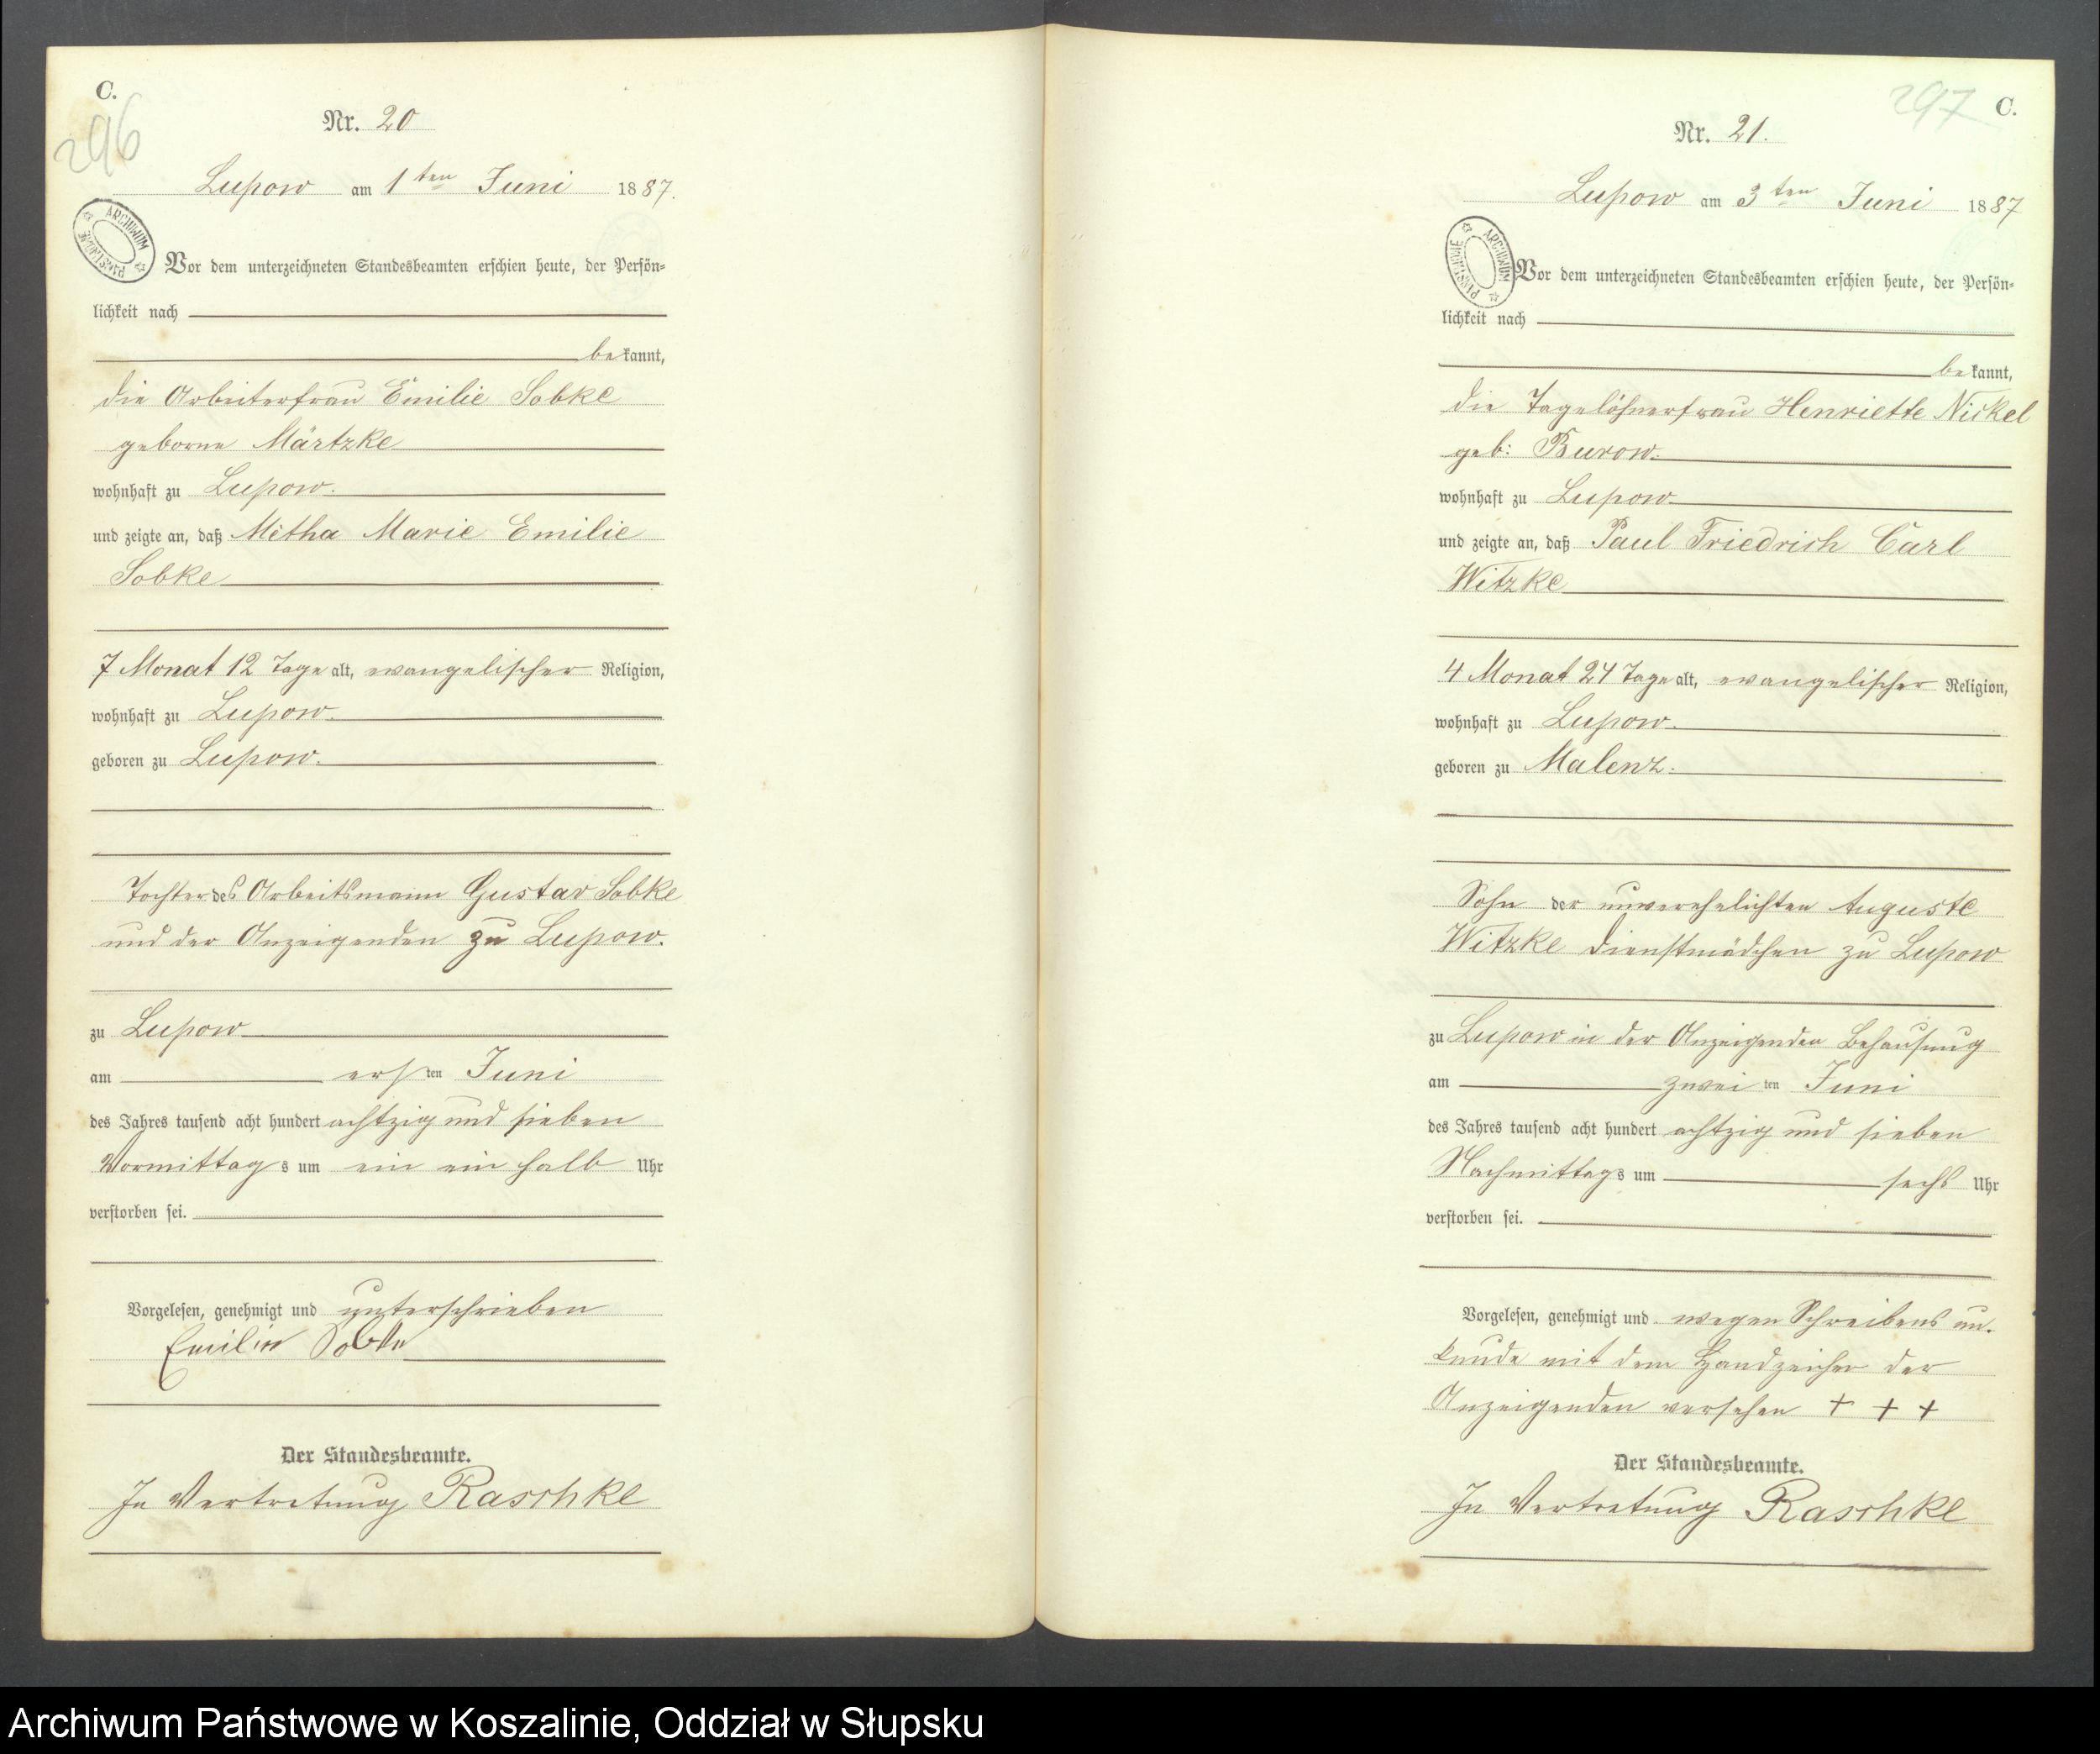 C.
296
Nr. 20
Lupow am 1ten Juni 1887.
ARCHIWUM PAŃSTWOWE
Vor dem unterzeichneten Standesbeamten erschien heute, der Persön-
lichkeit nach
bekannt,
die Arbeiterfrau Emilie Sobke
geborne Märtzke
wohnhaft zu Lupow.
und zeigte an, daß Metha Marie Emilie
Sobke
7 Monat 12 Tage alt, evangelischer Religion,
wohnhaft zu Lupow.
geboren zu Lupow.
Tochter des Arbeitsmann Gustav Sobke
und der Anzeigenden zu Lupow.
zu Lupow
am ersten Juni
des Jahres tausend acht hundert achtzig und sieben
Vormittags um ein ein halb Uhr
verstorben sei.
Vorgelesen, genehmigt und unterschrieben
Emilie Sobke
Der Standesbeamte.
In Vertretung Raschke
297
C.
Nr. 21.
Lupow am 3ten Juni 1887
ARCHIWUM PAŃSTWOWE
Vor dem unterzeichneten Standesbeamten erschien heute, der Persön-
lichkeit nach
bekannt,
die Tagelöhnerfrau Henriette Nickel
geb: Burow.
wohnhaft zu Lupow
und zeigte an, daß Paul Friedrich Carl
Witzke
4 Monat 24 Tage alt, evangelischer Religion,
wohnhaft zu Lupow.
geboren zu Malenz.
Sohn der unverehelichten Auguste
Witzke Dienstmädchen zu Lupow
zu Lupow in der Anzeigenden Behausung
am zweiten Juni
des Jahres tausend acht hundert achtzig und sieben
Nachmittags um sechs Uhr
verstorben sei.
Vorgelesen, genehmigt und wegen Schreibens un-
kunde mit dem Handzeichen der
Anzeigenden versehen + + +
Der Standesbeamte.
In Vertretung Raschke
Archiwum Państwowe w Koszalinie, Oddział w Słupsku